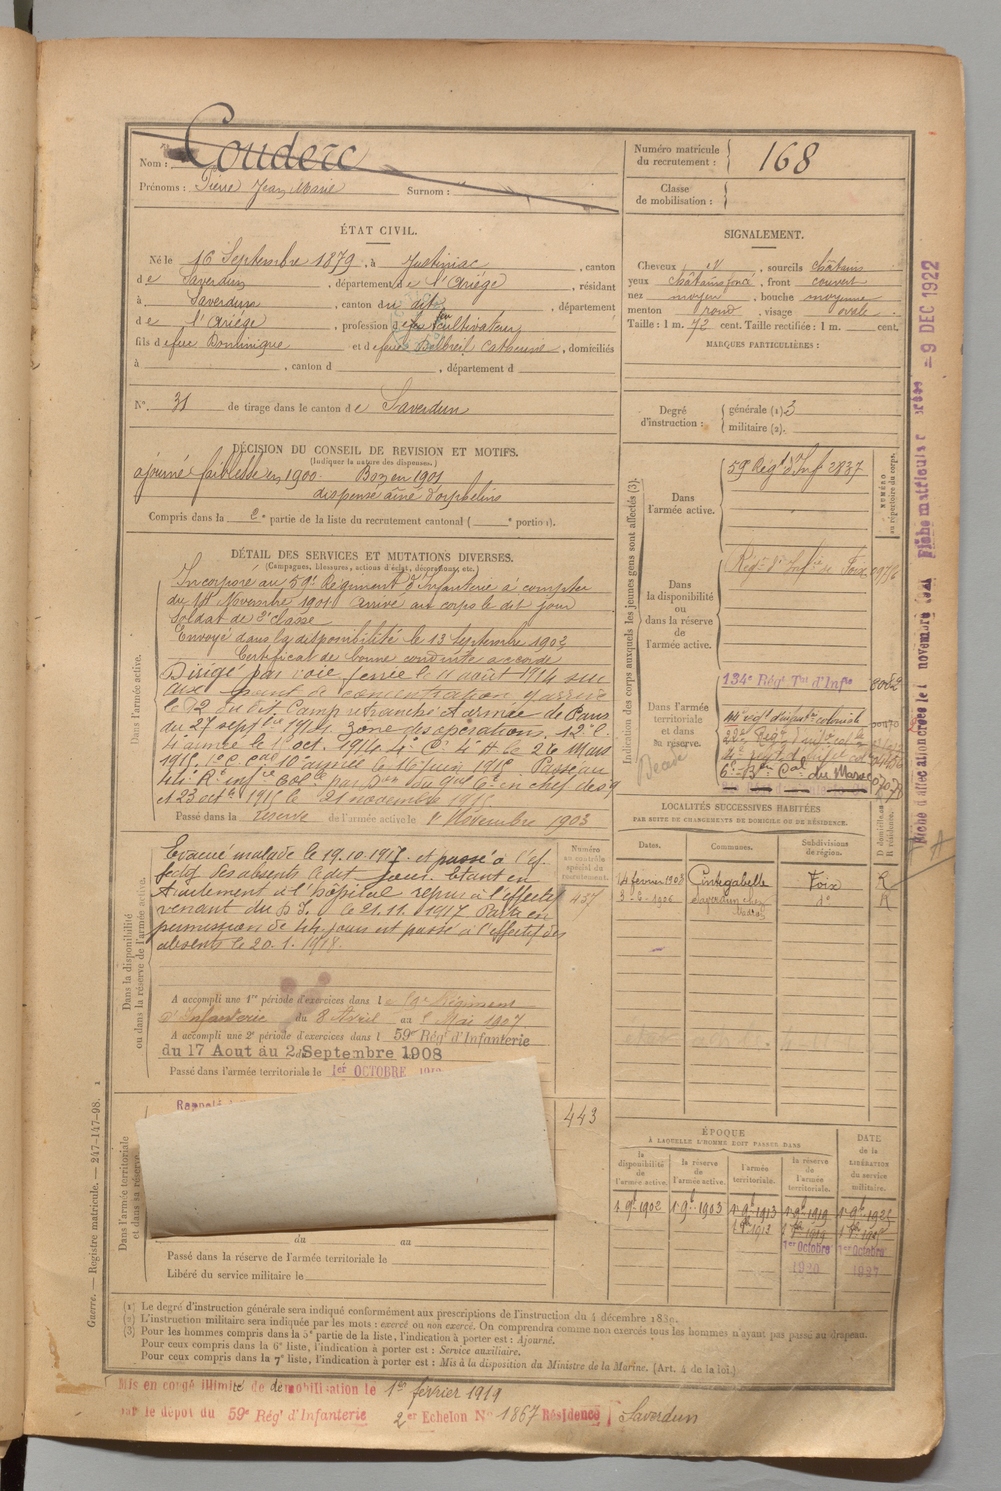 Nom : Couderc
Prénoms : Pierre Jean Marie Surnom :
Numéro matricule du recrutement : 168
Classe de mobilisation :
ÉTAT CIVIL.
Né le 16 Septembre 1879, à Justiniac, canton
de Saverdun, département de l'Ariège, résidant
à Saverdun, canton du dit, département
de l'Ariège, profession de cultivateur
fils de feu Dominique et de feue Delbreil Catherine, domiciliés
à , canton d , département d
N° 31 de tirage dans le canton de Saverdun
SIGNALEMENT.
Cheveux et , sourcils châtains
yeux châtains foncé , front couvert
nez moyen , bouche moyenne
menton rond , visage ovale .
Taille : 1 m. 72 cent. Taille rectifiée : 1 m. cent.
MARQUES PARTICULIÈRES :
Degré d'instruction : générale (1) 3
militaire (2).
DÉCISION DU CONSEIL DE REVISION ET MOTIFS.
(Indiquer la nature des dispenses.)
ajourné faiblesse en 1900. Bon en 1901
dispensé aîné d'orphelins
Compris dans la e partie de la liste du recrutement cantonal ( e portion).
DÉTAIL DES SERVICES ET MUTATIONS DIVERSES.
(Campagnes, blessures, actions d'éclat, décorations, etc.)
Dans l'armée active.
Incorporé au 59e Régiment d'Infanterie à compter
du 14 Novembre 1901 arrivé au corps le dit jour
soldat de 2e classe
Envoyé dans la disponibilité le 13 Septembre 1902
Certificat de bonne conduite accordé
Dirigé par voie ferrée le 11 août 1914 sur
concentration y arrivé
le 12 du dit. Camp retranché et armée de Paris
du 27 septbre 1914. Zone des opérations, 12e C.
4e armée le 1er oct. 1914 4e C. 4e A le 26 Mars
1915. 1er C. Cal 10e armée le 16 juin 1915. Passé au
44e R. infie Colle par Don du Gal Ct en chef des 9
et 23 octe 1915 le 21 novembre 1915
Passé dans la réserve de l'armée active le 1er Novembre 1903
Dans la disponibilité ou dans la réserve de l'armée active.
Evacué malade le 19.10.1917 et passé à l'ef
fectif des absents ledit jour. Etant en
traitement à l'hôpital repris à l'effectif
venant du D.I. le 21.11.1917. Parti en
permission de 44 jours est passé à l'effectif des
absents le 20.1.1918.
Numéro au contrôle spécial du recrutement.
457
A accompli une 1re période d'exercices dans le 59e Régiment
d'Infanterie du 8 Avril au 4 Mai 1907
A accompli une 2e période d'exercices dans l 59e Régt d'Infanterie
du 17 Aout au 2 Septembre 1908
Passé dans l'armée territoriale le 1er OCTOBRE
Dans l'armée territoriale et dans sa réserve
443
du au
Passé dans la réserve de l'armée territoriale le
Libéré du service militaire le
Indication des corps auxquels les jeunes gens sont affectés (3).
NUMÉRO au répertoire du corps.
Dans l'armée active.
59e Régt d'Infie 2837
Dans la disponibilité ou dans la réserve de l'armée active.
Régt d'Infie de Foix
Dans l'armée territoriale et dans sa réserve.
134e Régt Tal d'Infie
44e régt d'infant coloniale
22e Régt infie colle
4e régt d'infie col
6e Bon Cal du Maroc
LOCALITÉS SUCCESSIVES HABITÉES
PAR SUITE DE CHANGEMENTS DE DOMICILE OU DE RÉSIDENCE.
Dates. Communes. Subdivisions de région. D domicile. R résidence.
14 février 1903 Cintegabelle Foix R
Saverdun do R
ÉPOQUE
À LAQUELLE L'HOMME DOIT PASSER DANS
la disponibilité de l'armée active. la réserve de l'armée active. l'armée territoriale. la réserve de l'armée territoriale.
DATE de la LIBÉRATION du service militaire.
1er 9b 1902 1er 9b 1903 1er 9b 1913 1er 9b 1919 1er 9b 1925
1er Octobre 1er Octobre
1920 1927
(1) Le degré d'instruction générale sera indiqué conformément aux prescriptions de l'instruction du 4 décembre 1889.
(2) L'instruction militaire sera indiquée par les mots : exercé ou non exercé. On comprendra comme non exercés tous les hommes n'ayant pas passé au drapeau.
(3) Pour les hommes compris dans la 5e partie de la liste, l'indication à porter est : Ajourné.
Pour ceux compris dans la 6e liste, l'indication à porter est : Service auxiliaire.
Pour ceux compris dans la 7e liste, l'indication à porter est : Mis à la disposition du Ministre de la Marine. (Art. 4 de la loi.)
Mis en congé illimité de démobilisation le 1er février 1919
par le dépôt du 59e Régt d'Infanterie 2er Echelon N° 1867 Résidence Saverdun
Guerre. — Registre matricule. — 247-147-98. 1
Fiche d'affectation créée le 1 novembre Fiche matricule créée = 9 DEC 1922